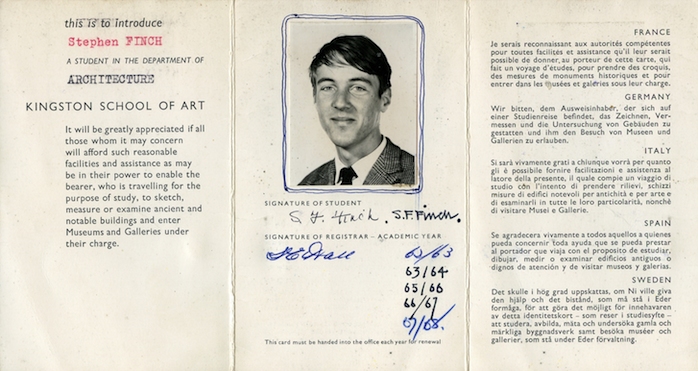 this is to introduce
Stephen FINCH
A STUDENT IN THE DEPARTMENT OF
ARCHITECTURE
KINGSTON SCHOOL OF ART
It will be greatly appreciated if all
those whom it may concern
will afford such reasonable
facilities and assistance as may
be in their power to enable the
bearer, who is travelling for the
purpose of study, to sketch,
measure or examine ancient and
notable buildings and enter
Museums and Galleries under
their charge.
SIGNATURE OF STUDENT
S F Finch. S.F.Finch.
SIGNATURE OF REGISTRAR – ACADEMIC YEAR
62/63
63/64
65/66
66/67
67/68.
This card must be handed into the office each year for renewal
FRANCE
Je serais reconnaissant aux autorités compétentes
pour toutes facilités et assistance qu'il leur serait
possible de donner, au porteur de cette carte, qui
fait un voyage d'études, pour prendre des croquis,
des mesures de monuments historiques et pour
entrer dans les musées et galeries sous leur charge.
GERMANY
Wir bitten, dem Ausweisinhaber, der sich auf
einer Studienreise befindet, das Zeichnen, Ver-
messen und die Untersuchung von Gebäuden zu
gestatten und ihm den Besuch von Museen und
Gallerien zu erlauben.
ITALY
Si sarà vivamente grati a chiunque vorrà per quanto
gli è possibile fornire facilitazioni e assistenza al
latore della presente, il quale compie un viaggio di
studio con l'intento di prendere rilievi, schizzi
misure di edifici notevoli per antichità e per arte e
di esaminarli in tutte le loro particolarità, nonchè
di visitare Musei e Gallerie.
SPAIN
Se agradecera vivamente a todos aquellos a quienes
pueda concernir toda ayuda que se pueda prestar
al portador que viaja con el proposito de estudiar,
dibujar, medir o examinar edificios antiguos o
dignos de atención y de visitar museos y galerias.
SWEDEN
Det skulle i hög grad uppskattas, om Ni ville giva
den hjälp och det bistånd, som må stå i Eder
förmåga, för att göra det möjligt för innehavaren
av detta identitetskort – som reser i studiesyfte –
att studera, avbilda, mäta och undersöka gamla och
märkliga byggnadsverk samt besöka muséer och
gallerier, som stå under Eder förvaltning.